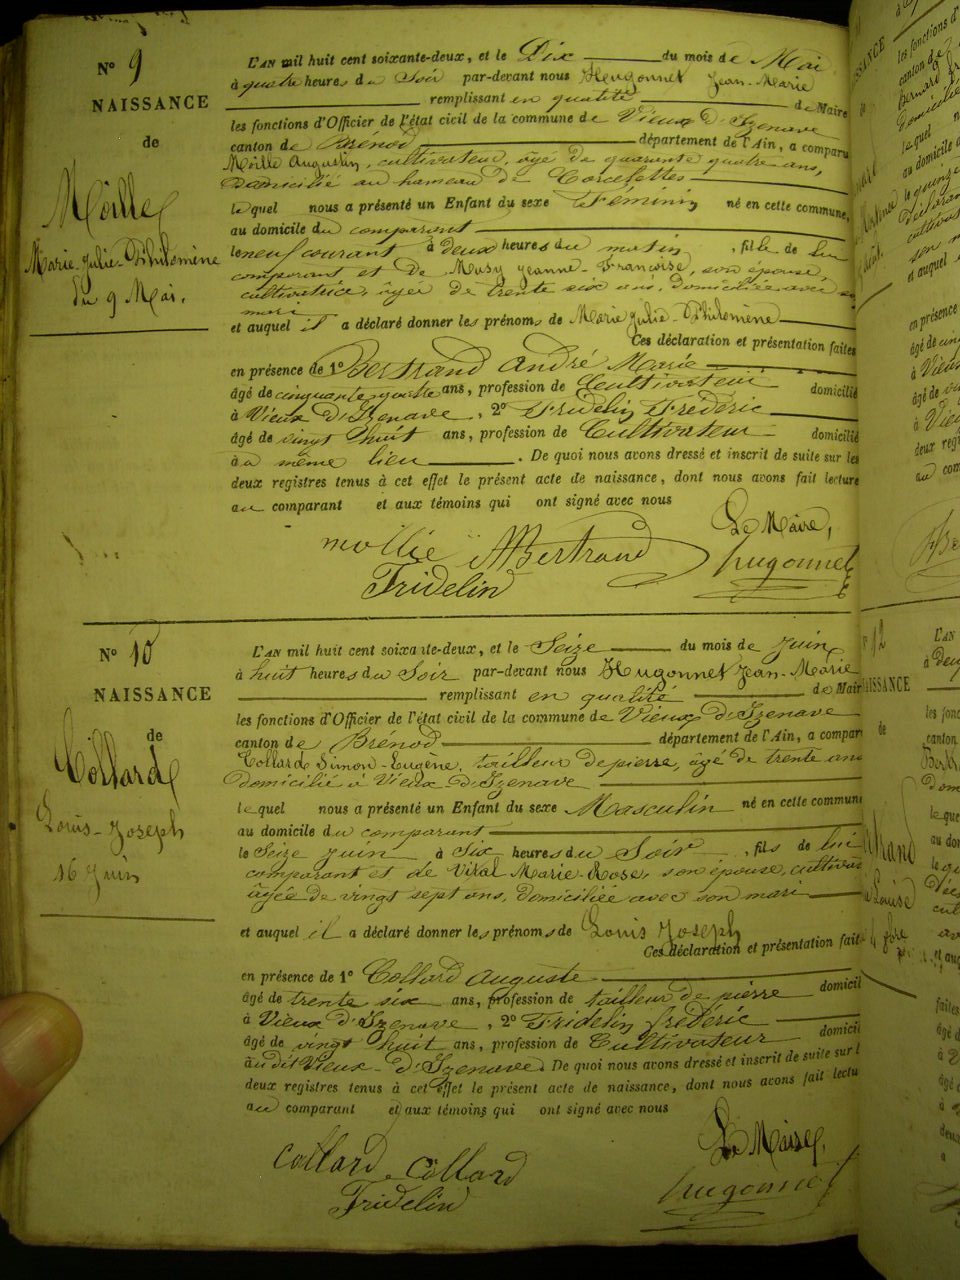 N° 9
NAISSANCE
de
Moille
Marie-Julie-Philomène
du 9 Mai.
L'AN mil huit cent soixante-deux, et le Dix du mois de Mai
à quatre heures du Soir par-devant nous Hugonnet Jean-Marie
remplissant en qualité de Maire
les fonctions d'Officier de l'état civil de la commune de Vieux d'Izenave
canton de Brénod département de l'Ain, a comparu
Moille Augustin, cultivateur, âgé de quarante quatre ans,
Domicilié au hameau de Corcelettes
lequel nous a présenté un Enfant du sexe Féminin né en cette commune,
au domicile du comparant
le neuf courant à deux heures du matin, fille de lui
comparant et de Musy Jeanne-Françoise, son épouse,
cultivatrice, âgée de trente six ans, domiciliée avec
mari
et auquel il a déclaré donner les prénoms de Marie Julie-Philomène
Ces déclaration et présentation faites
en présence de 1° Bertrand André Marie
âgé de cinquante quatre ans, profession de Cultivateur domicilié
à Vieux d'Izenave, 2° Fridelin Fredéric
âgé de vingt huit ans, profession de Cultivateur domicilié
au même lieu. De quoi nous avons dressé et inscrit de suite sur les
deux registres tenus à cet effet le présent acte de naissance, dont nous avons fait lecture
au comparant et aux témoins qui ont signé avec nous
Le Maire,
mollie ABertrand hugonnet
Fridelin
N° 10
NAISSANCE
de
Collard
Louis-Joseph
16 Juin
L'AN mil huit cent soixante-deux, et le Seize du mois de Juin
à huit heures du Soir par-devant nous Hugonnet Jean-Marie
remplissant en qualité de Mair
les fonctions d'Officier de l'état civil de la commune de Vieux d'Izenave
canton de Brénod département de l'Ain, a compar
Collard Simon-Eugène, tailleur de pierre, âgé de trente ans
domicilié à Vieux d'Izenave
lequel nous a présenté un Enfant du sexe Masculin né en cette commun
au domicile du comparant
le Seize Juin à Six heures du Soir, fils de lui
comparant et de Vital Marie-Rose, son épouse, cultiva
âgée de vingt sept ans, domiciliée avec son mari
et auquel il a déclaré donner les prénoms de Louis Joseph
Ces déclaration et présentation fait
en présence de 1° Collard Auguste
âgé de trente six ans, profession de tailleur de pierre domicil
à Vieux d'Izenave, 2° Fridelin frédéric
âgé de vingt huit ans, profession de Cultivateur domicil
au dit Vieux-d'Izenave. De quoi nous avons dressé et inscrit de suite sur l
deux registres tenus à cet effet le présent acte de naissance, dont nous avons fait lectu
au comparant et aux témoins qui ont signé avec nous
Le Maire,
Collard Collard hugonnet
Fridelin
12
AISSANCE
de